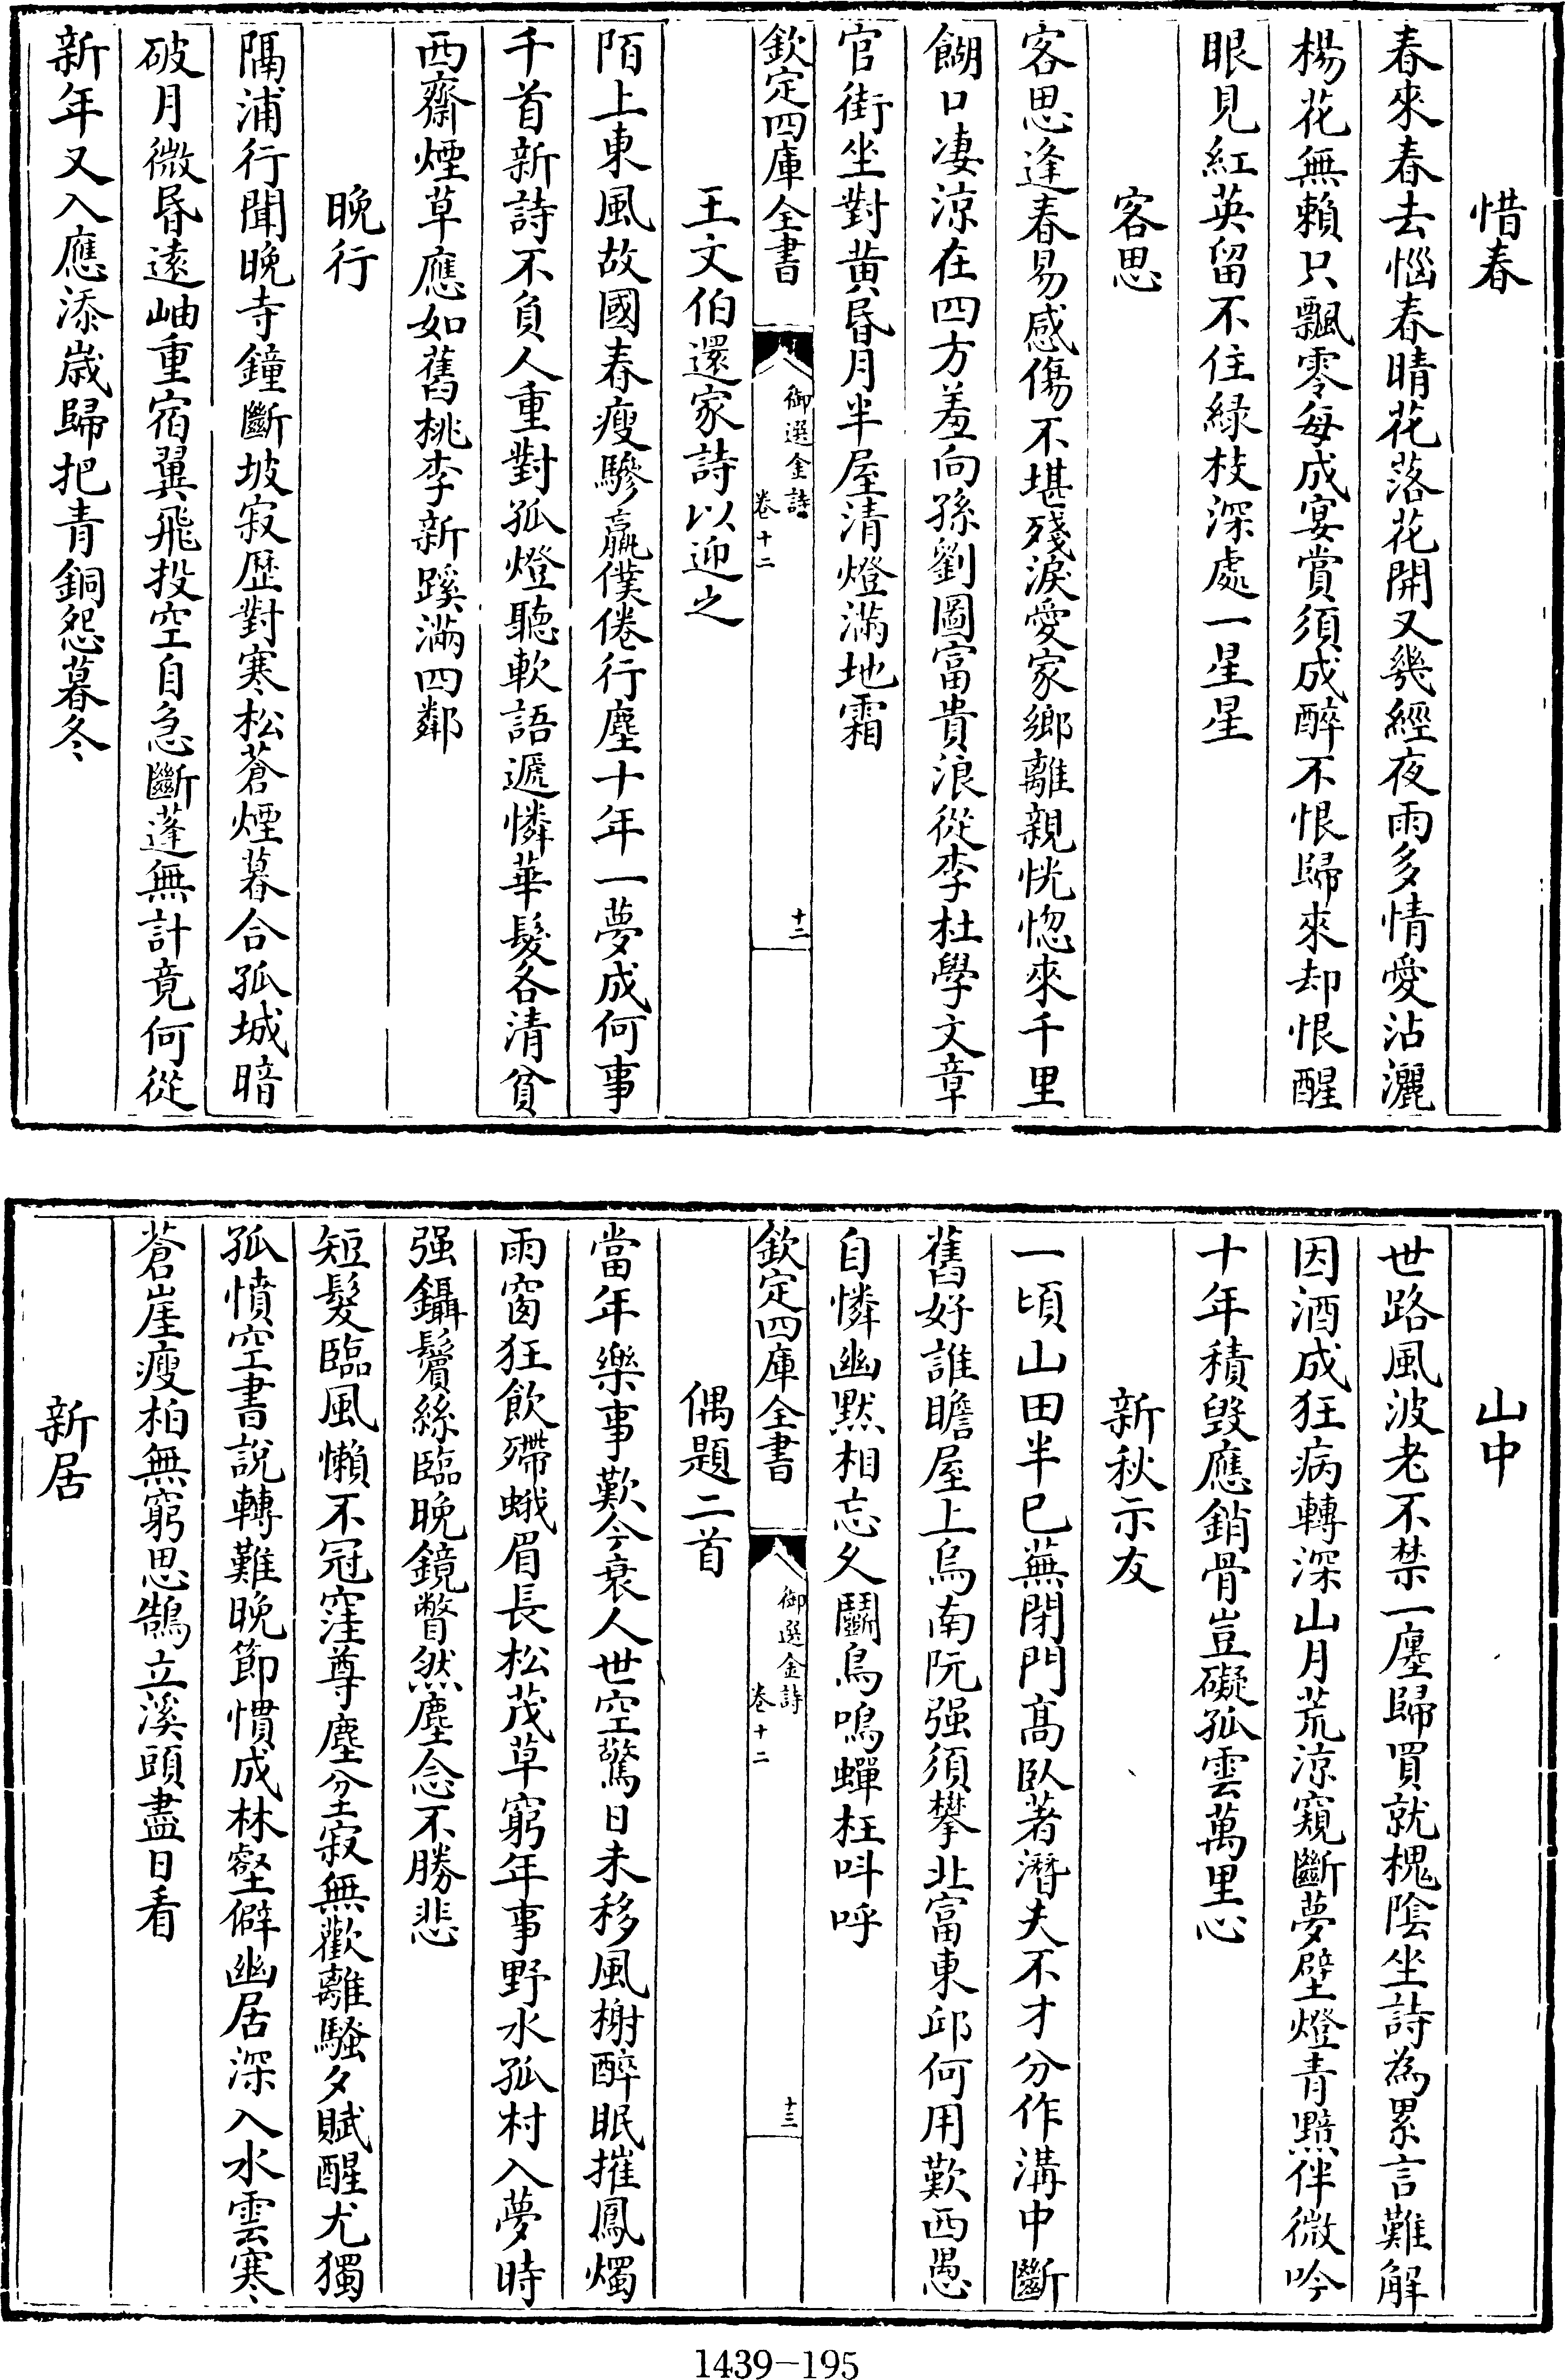 惜春
春來春去惱春晴花落花開又幾經夜雨多情愛沾灑
楊花無賴只飄零每成宴賞須成醉不恨歸來却恨醒
眼見紅英留不住緑枝深處一星星
客思
客思逢春易感傷不堪殘淚愛家鄉離親恍惚來千里
餬口凄涼在四方羞向孫劉圖富貴浪從李杜學文章
官街坐對黄昏月半屋清燈滿地霜
欽定四庫全書
御選金詩
卷十二
十二
王文伯還家詩以迎之
陌上東風故國春瘦驂羸僕倦行塵十年一夢成何事
千首新詩不負人重對孤燈聽軟語遞憐華髮各清貧
西齋煙草應如舊桃李新蹊滿四鄰
晚行
隔浦行聞晚寺鐘斷坡寂歴對寒松蒼煙暮合孤城暗
破月微昏遠岫重宿翼飛投空自急斷蓬無計竟何從
新年又入應添歳歸把青銅怨暮冬
山中
世路風波老不禁一廛歸買就槐陰坐詩為累言難解
因酒成狂病轉深山月荒涼窺斷夢壁燈青黯伴微吟
十年積毁應銷骨豈礙孤雲萬里心
新秋示友
一頃山田半已蕪閉門髙臥著潛夫不才分作溝中斷
舊好誰瞻屋上烏南阮强須攀北富東邱何用歎西愚
自憐幽黙相忘久鬬鳥鳴蟬枉呌呼
欽定四庫全書
御選金詩
卷十二
十三
偶題二首
當年樂事歎今衰人世空驚日未移風榭醉眠摧鳳燭
雨窗狂飲殢蛾眉長松茂草窮年事野水孤村入夢時
强鑷鬢絲臨晚鏡瞥然塵念不勝悲
短髮臨風懶不冠窪尊塵坌寂無歡離騷夕賦醒尤獨
孤憤空書說轉難晚節慣成林壑僻幽居深入水雲寒
蒼崖瘦柏無窮思鵠立溪頭盡日看
新居
1439-195